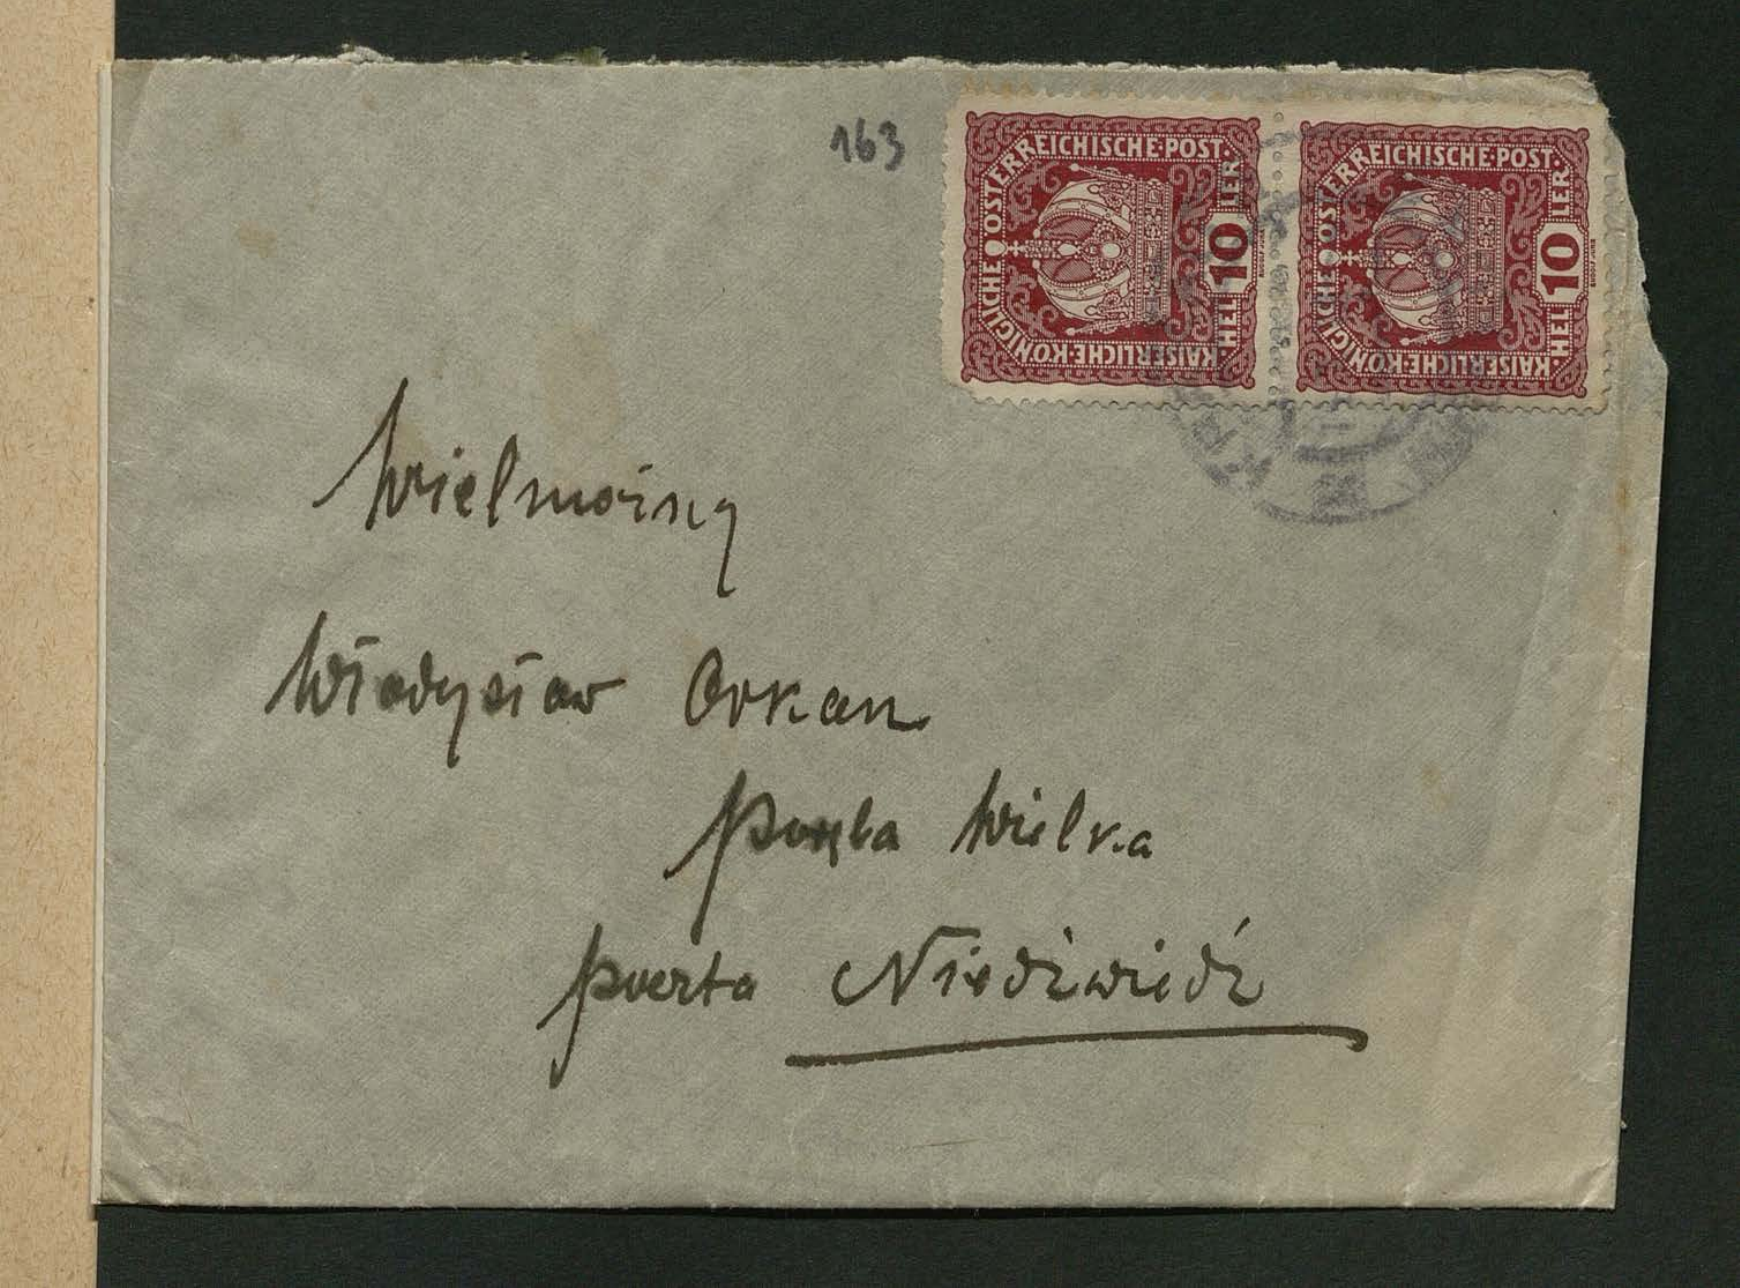 163
KAISERLICHE·KÖNIGLICHE ÖSTERREICHISCHE·POST·
10 HELLER
KAISERLICHE·KÖNIGLICHE ÖSTERREICHISCHE·POST·
10 HELLER
Wielmożny
Władysław Orkan
Poręba Wielka
poczta Niedźwiedź